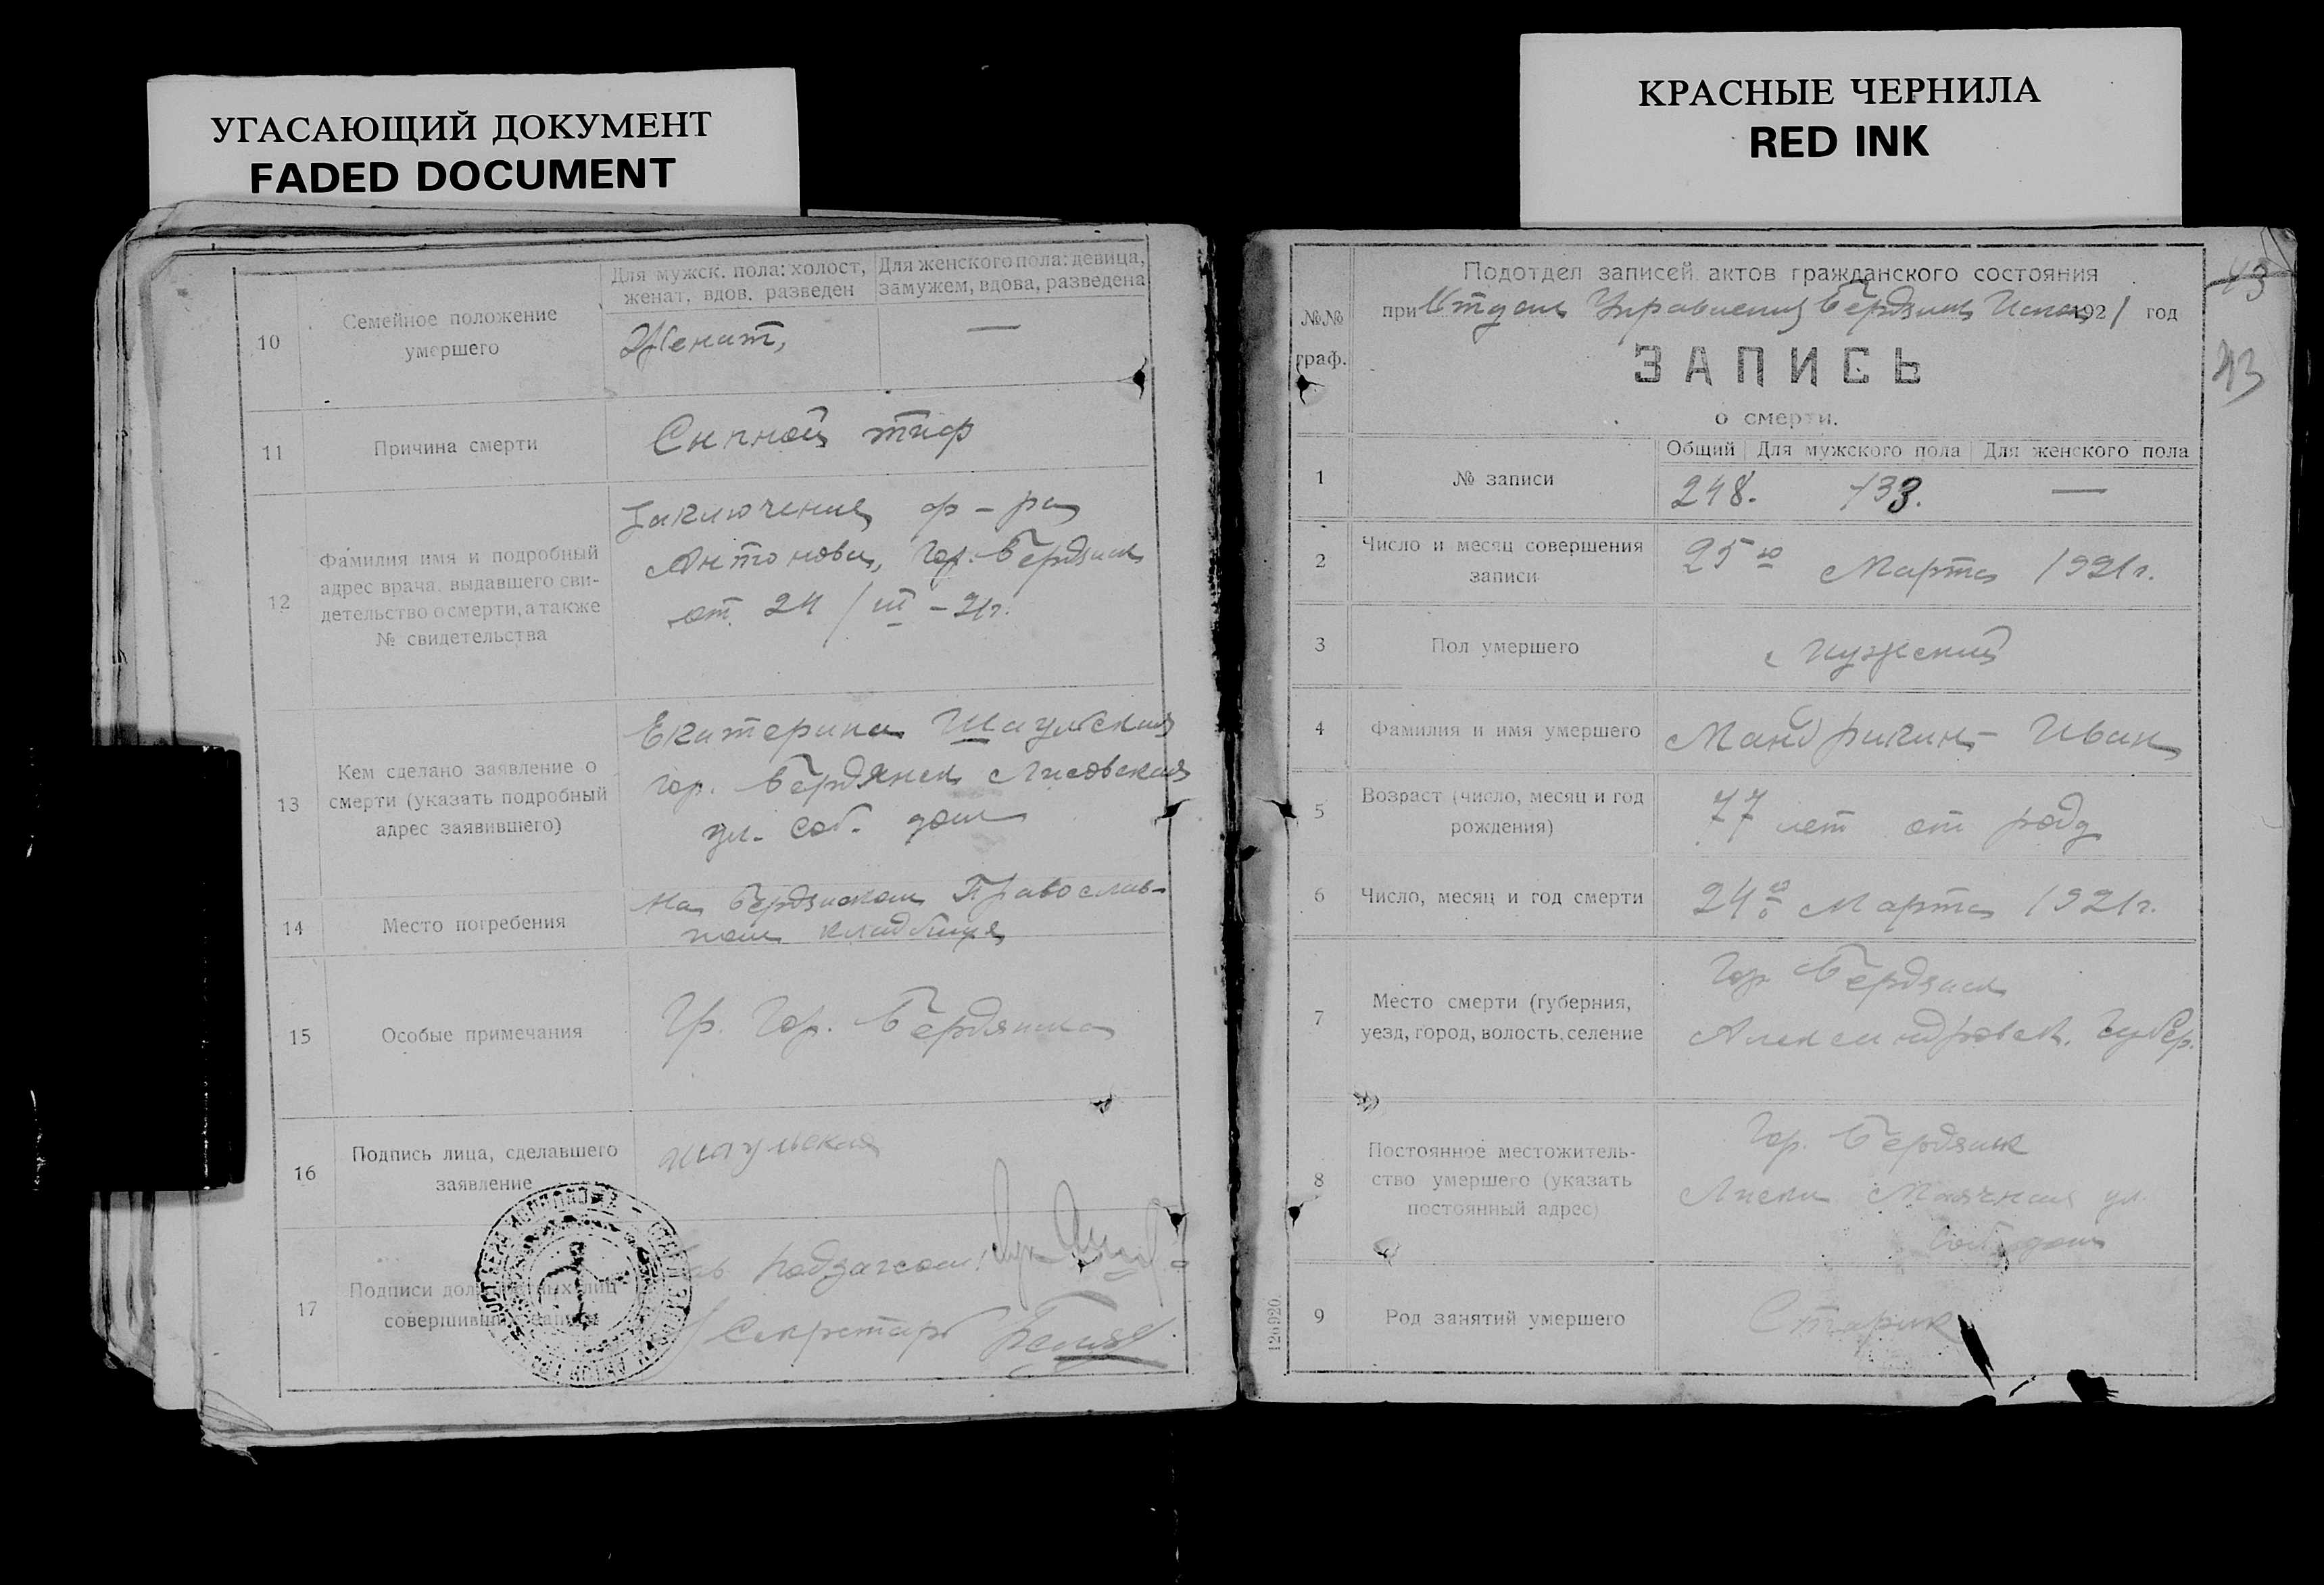 УГАСАЮЩИЙ ДОКУМЕНТ
FADED DOCUMENT
КРАСНЫЕ ЧЕРНИЛА
RED INK
10
Семейное положение
умершего
Для мужск. пола: холост,
женат, вдов, разведен
Для женского пола: девица,
замужем, вдова, разведена
Женат,
—
11
Причина смерти
Сыпной тиф
12
Фамилия имя и подробный
адрес врача, выдавшего сви-
детельство о смерти, а также
№ свидетельства
Заключение ф-ра
Антонова, гор. Бердянск
от 24/III-21г.
13
Кем сделано заявление о
смерти (указать подробный
адрес заявившего)
Екатерина Шаульская
гор. Бердянск Лисовская
ул. соб. дом
14
Место погребения
На Бердянском Православ-
ном кладбище
15
Особые примечания
Гр. Гор. Бердянска
16
Подпись лица, сделавшего
заявление
Шаульская
17
Подписи должностных лиц
совершивших запись
Зав. подзагсом
Секретарь
43
43
№№
граф.
Подотдел записей актов гражданского состояния
при Отделе Управления Бердянск Испол 1921 год
ЗАПИСЬ
о смерти.
1
№ записи
Общий
Для мужского пола
Для женского пола
248. 133. —
2
Число и месяц совершения
записи
25го Марта 1921г.
3
Пол умершего
Мужской
4
Фамилия и имя умершего
Мандрыкин Иван
5
Возраст (число, месяц и год
рождения)
77 лет от роду
6
Число, месяц и год смерти
24го Марта 1921г.
7
Место смерти (губерния,
уезд, город, волость, селение
Гор Бердянск
Александровск. Губер.
8
Постоянное местожитель-
ство умершего (указать
постоянный адрес)
Гор. Бердянск
Лиски Маячная ул.
соб. дом
9
Род занятий умершего
Старик